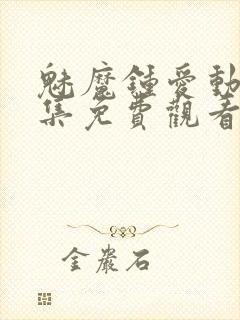 魅魔鍾愛動
集免費觀看
金巖石